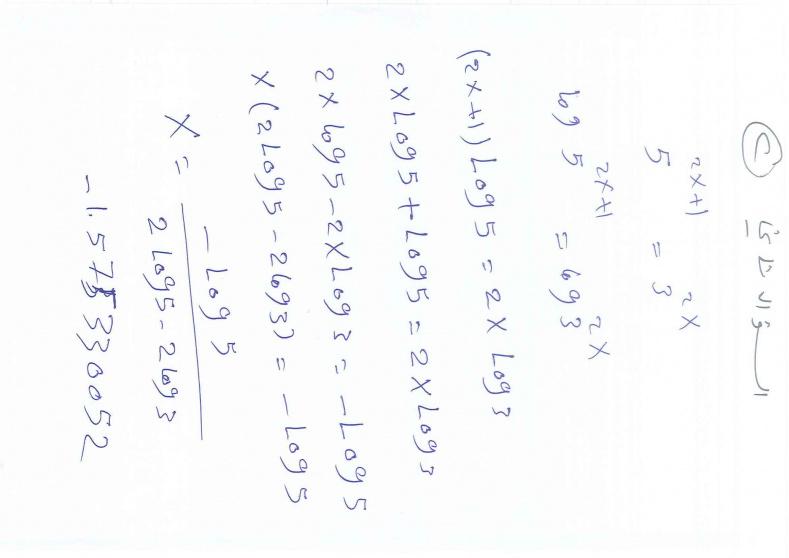 السؤال الثاني C
5^{2x+1} = 3^{2x}
log 5^{2x+1} = log 3^{2x}
(2x+1) Log 5 = 2x Log 3
2x Log 5 + Log 5 = 2x Log 3
2x Log 5 - 2x Log 3 = - Log 5
x (2 Log 5 - 2 Log 3) = - Log 5
x = \frac{- Log 5}{2 Log 5 - 2 Log 3}